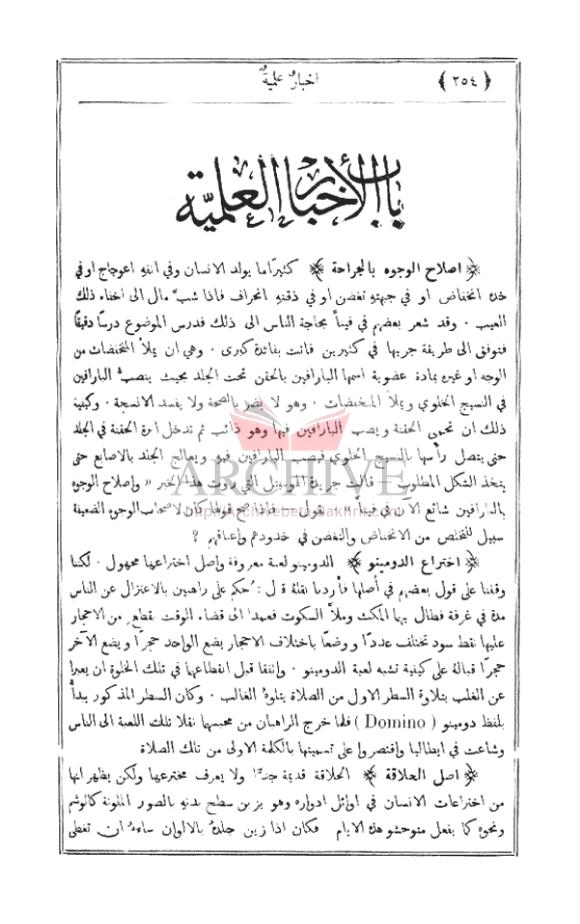 ﴿ ٢٥٤ ﴾
اخبار علمية
باب الأخبار العلمية
﴿ اصلاح الوجوه بالجراحة ﴾ كثيرًا ما يولد الانسان وفي انفهِ اعوجاج او في
خدهِ انخفاض او في جبهتهِ تغضن او في ذقنهِ انحراف فاذا شبَّ مال الى اخفاء ذلك
العيب ٠ وقد شعر بعضهم في فينأ بحاجة الناس الى ذلك فدرس الموضوع درسًا دقيقًا
فتوفق الى طريقة جربها في كثيرين فاتت بفائدة كبرى ٠ وهي ان يملأ المنخفضات من
الوجه او غيره بمادة عضوية اسمها البارافين بالحقن تحت الجلد بحيث ينصبُّ البارافين
في النسيج الخلوي ويملأ المنخفضات ٠ وهو لا يضر بالصحة ولا يفسد الانسجة ٠ وكيفية
ذلك ان تحمى الحقنة ويصب البارافين فيها وهو ذائب ثم تدخل ابرة الحقنة في الجلد
حتى يتصل رأسها بالنسيج الخلوي فيصب البارافين فيهِ ويعالج الجلد بالاصابع حتى
يتخذ الشكل المطلوب ٠ قالت جريدة التي روت هذا الخبر « واصلاح الوجوه
بالبارافين شائع الآن في فينا » ٠ نقول ٠ فاذا صح قولها كان لاصحاب الوجوه الضعيفة
سبيل للتخلص من الانخفاض والتغضن في خدودهم واعناقهم ?
﴿ اختراع الدومينو ﴾ الدومينو لعبة معروفة واصل اختراعها مجهول ٠ لكننا
وقفنا على قول بعضهم في أصلها فأردنا نقلهُ قال : حُكم على راهبين بالاعتزال عن الناس
مدة في غرفة فطال بهما المكث وملأَّ السكوت فعمدا الى قضاء الوقت بقطع من الاحجار
عليها نقط سود تختلف عددًا ووضعًا باختلاف الاحجار يضع الواحد حجرًا ويضع الآخر
حجرًا قبالهُ على كيفية تشبه لعبة الدومينو ٠ واتفقا قبل انقطاعهما في تلك الخلوة ان يعبرا
عن الغلب بتلاوة السطر الاول من الصلاة يتلوهُ الغالب ٠ وكان السطر المذكور يبدأ
بلفظ دومينو ( Domino ) فلما خرج الراهبان من محبسهما نقلا تلك اللعبة الى الناس
وشاعت في ايطاليا واقتصروا على تسميتها بالكلمة الاولى من تلك الصلاة
﴿ اصل العلاقة ﴾ الحلاقة قديمة جدًّا ولا يعرف مخترعها ولكن يظهر انها
من اختراعات الانسان في اوائل ادواره وهو يزين سطح بدنهِ بالصور الملونة كالوشم
ونحوه كما يفعل متوحشو هذه الايام فكان اذا زين جلدهُ بالالوان ساءهُ ان تغطى
ARCHIVE